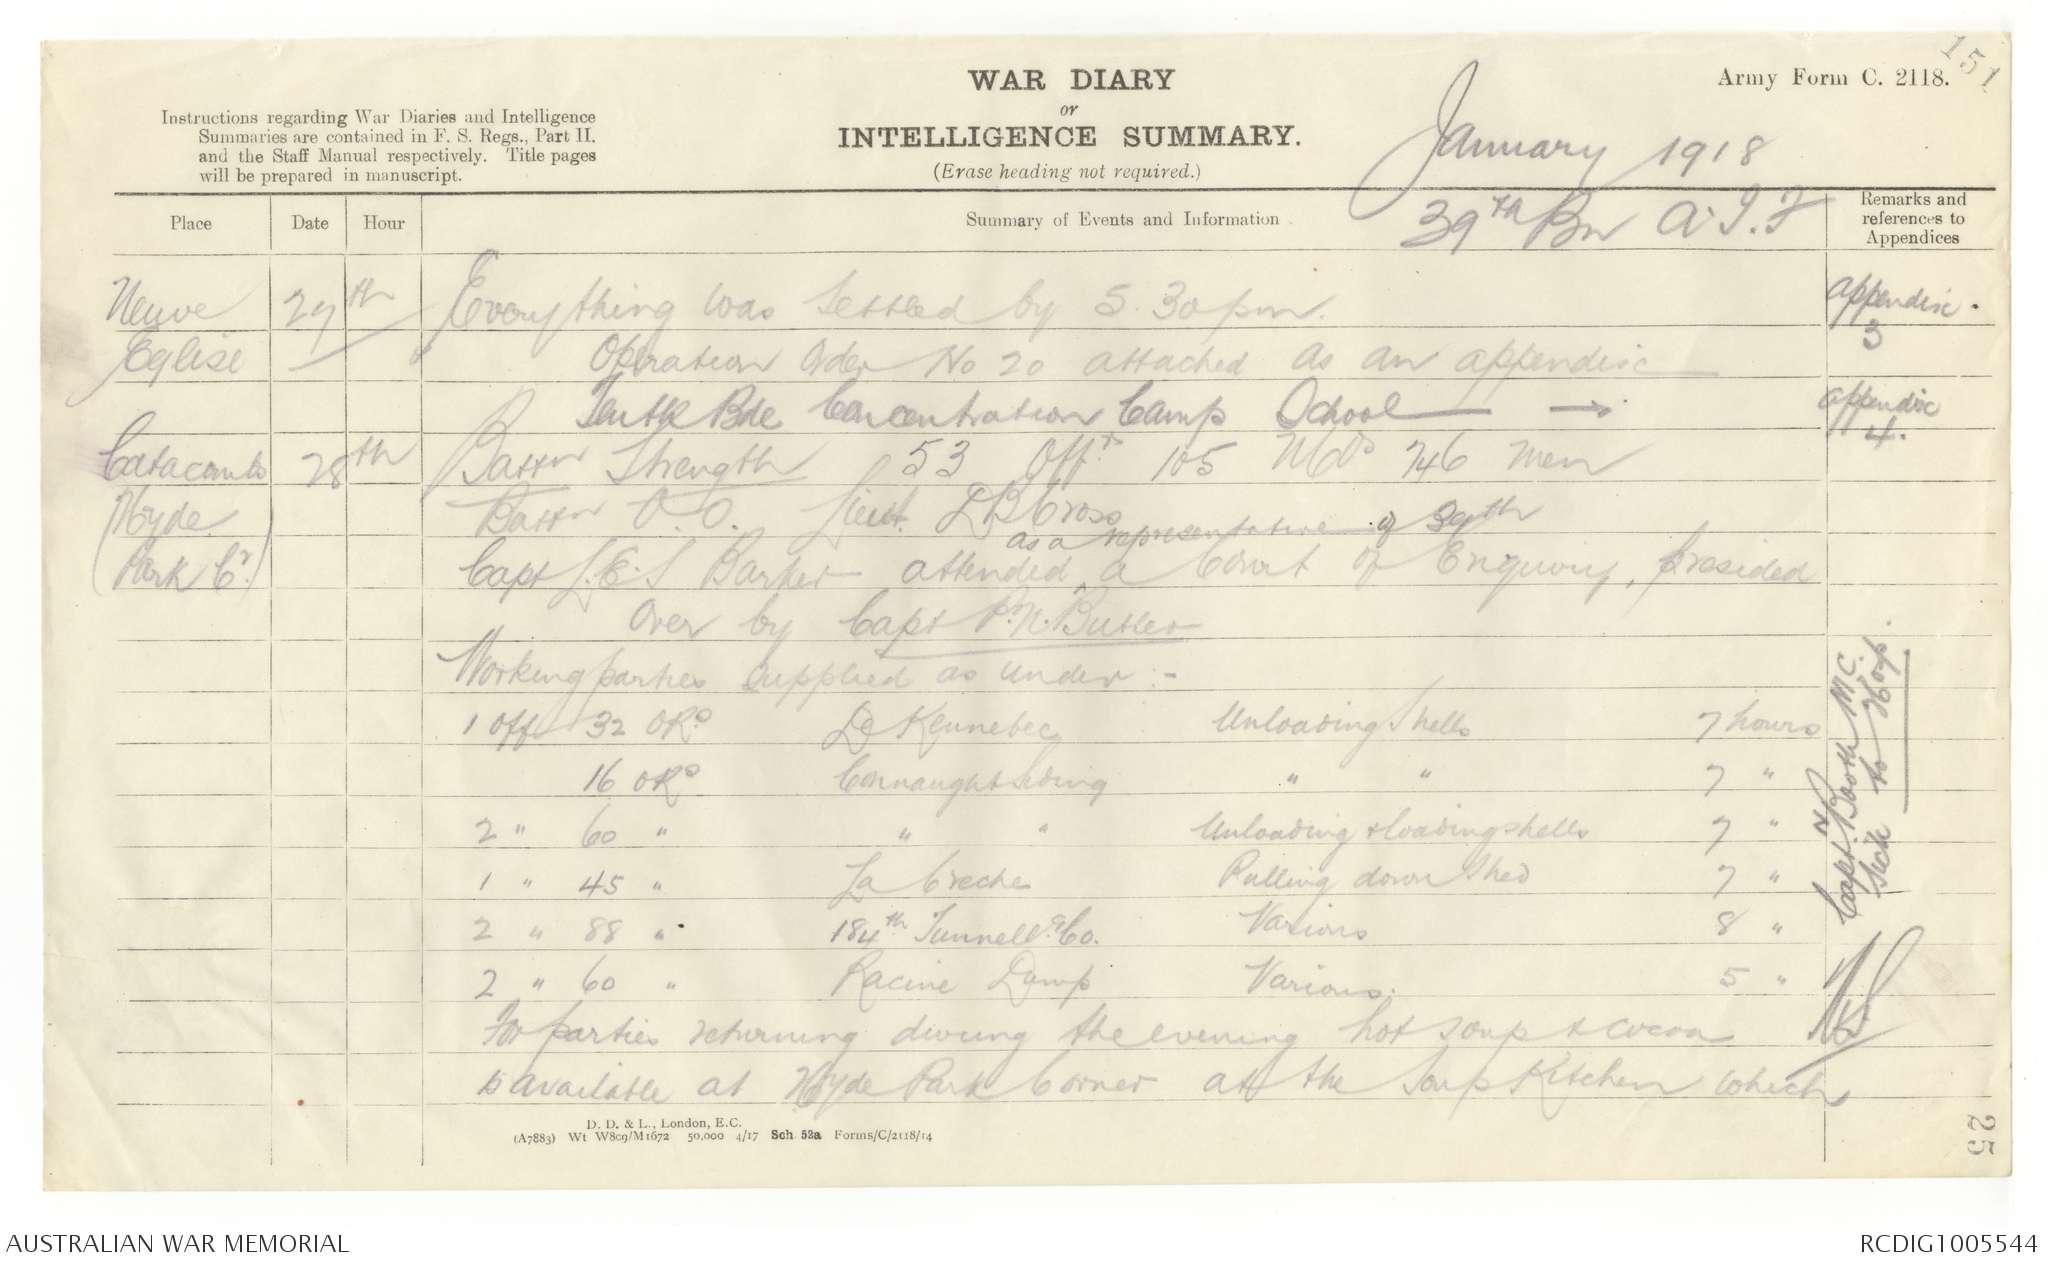 151
Army Form C. 2118.
WAR DIARY
or
INTELLIGENCE SUMMARY.
(Erase heading not required.)
Instructions regarding War Diaries and Intelligence
Summaries are contained in F. S. Regs., Part II.
and the Staff Manual respectively. Title pages
will be prepared in manuscript.
January 1918
39th Bn A.I.F
Place Date Hour Summary of Events and Information Remarks and references to Appendices
Neuve 27th Everything was settled by 5.30pm. appendix 3
Eglise Operation Order No 20 attached as an appendix
Tenth Bde Concentration Camp School → appendix 4.
Catacombs 28th Battn Strength 53 Offrs 105 NCOs 746 men
(Hyde Battn O.O. Lieut. L B Cross
as a representative of 39th
Park Cr.) Capt L.E.S Barker attended a Court of Enquiry, presided
over by Capt P.N. Butler
Working parties supplied as under :-
1 Off 32 ORs De Kennebec Unloading Shells 7 hours
16 ORs Connaught Siding " " 7 "
2 " 60 " " " Unloading & loading shells 7 "
1 " 45 " La Creche Pulling down Shed 7 "
2 " 88 " 184th Tunnell.g Co. Various 8 "
2 " 60 " Racine Dump Various. 5 "
For parties returning during the evening hot soup & cocoa
is available at Hyde Park Corner at the Soup Kitchen which
Capt. N Booth M.C.
Sick to Hosp.
25
D. D. & L., London, E.C.
(A7883) Wt W809/M1672 50,000 4/17 Sch 52a Forms/C/2118/14
AUSTRALIAN WAR MEMORIAL
RCDIG1005544